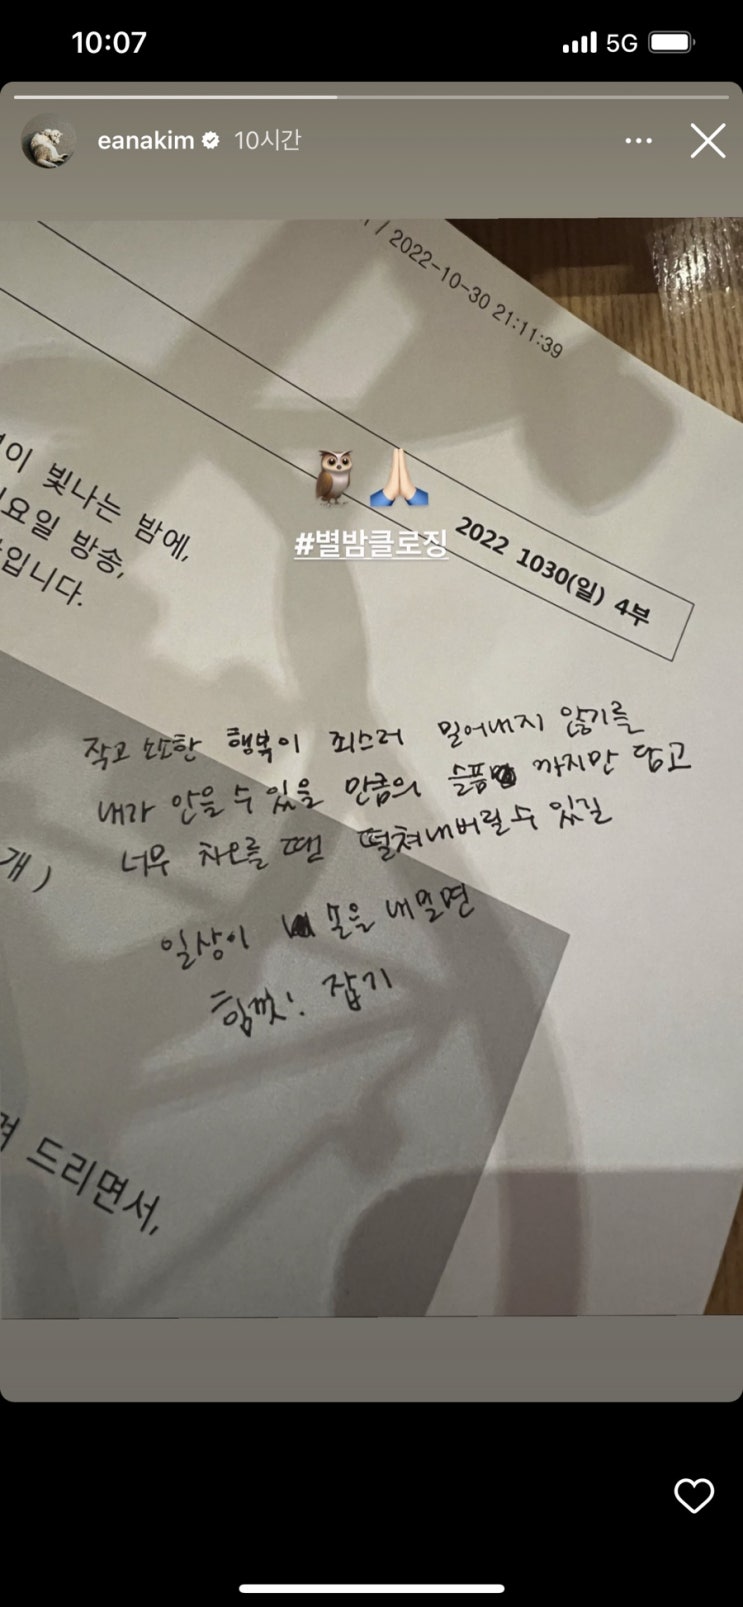 10:07
5G
eanakim 10시간
/ 2022-10-30 21:11:39
이 빛나는 밤에,
요일 방송,
입니다.
#별밤클로징
2022 1030(일) 4부
작고 소소한 행복이 죄스러 밀어내지 않기를
내가 안을 수 있을 만큼의 슬픔 까지만 담고
너무 차오를 땐 떨쳐내버릴 수 있길
개)
일상이 손을 내밀면
힘껏! 잡기
려 드리면서,